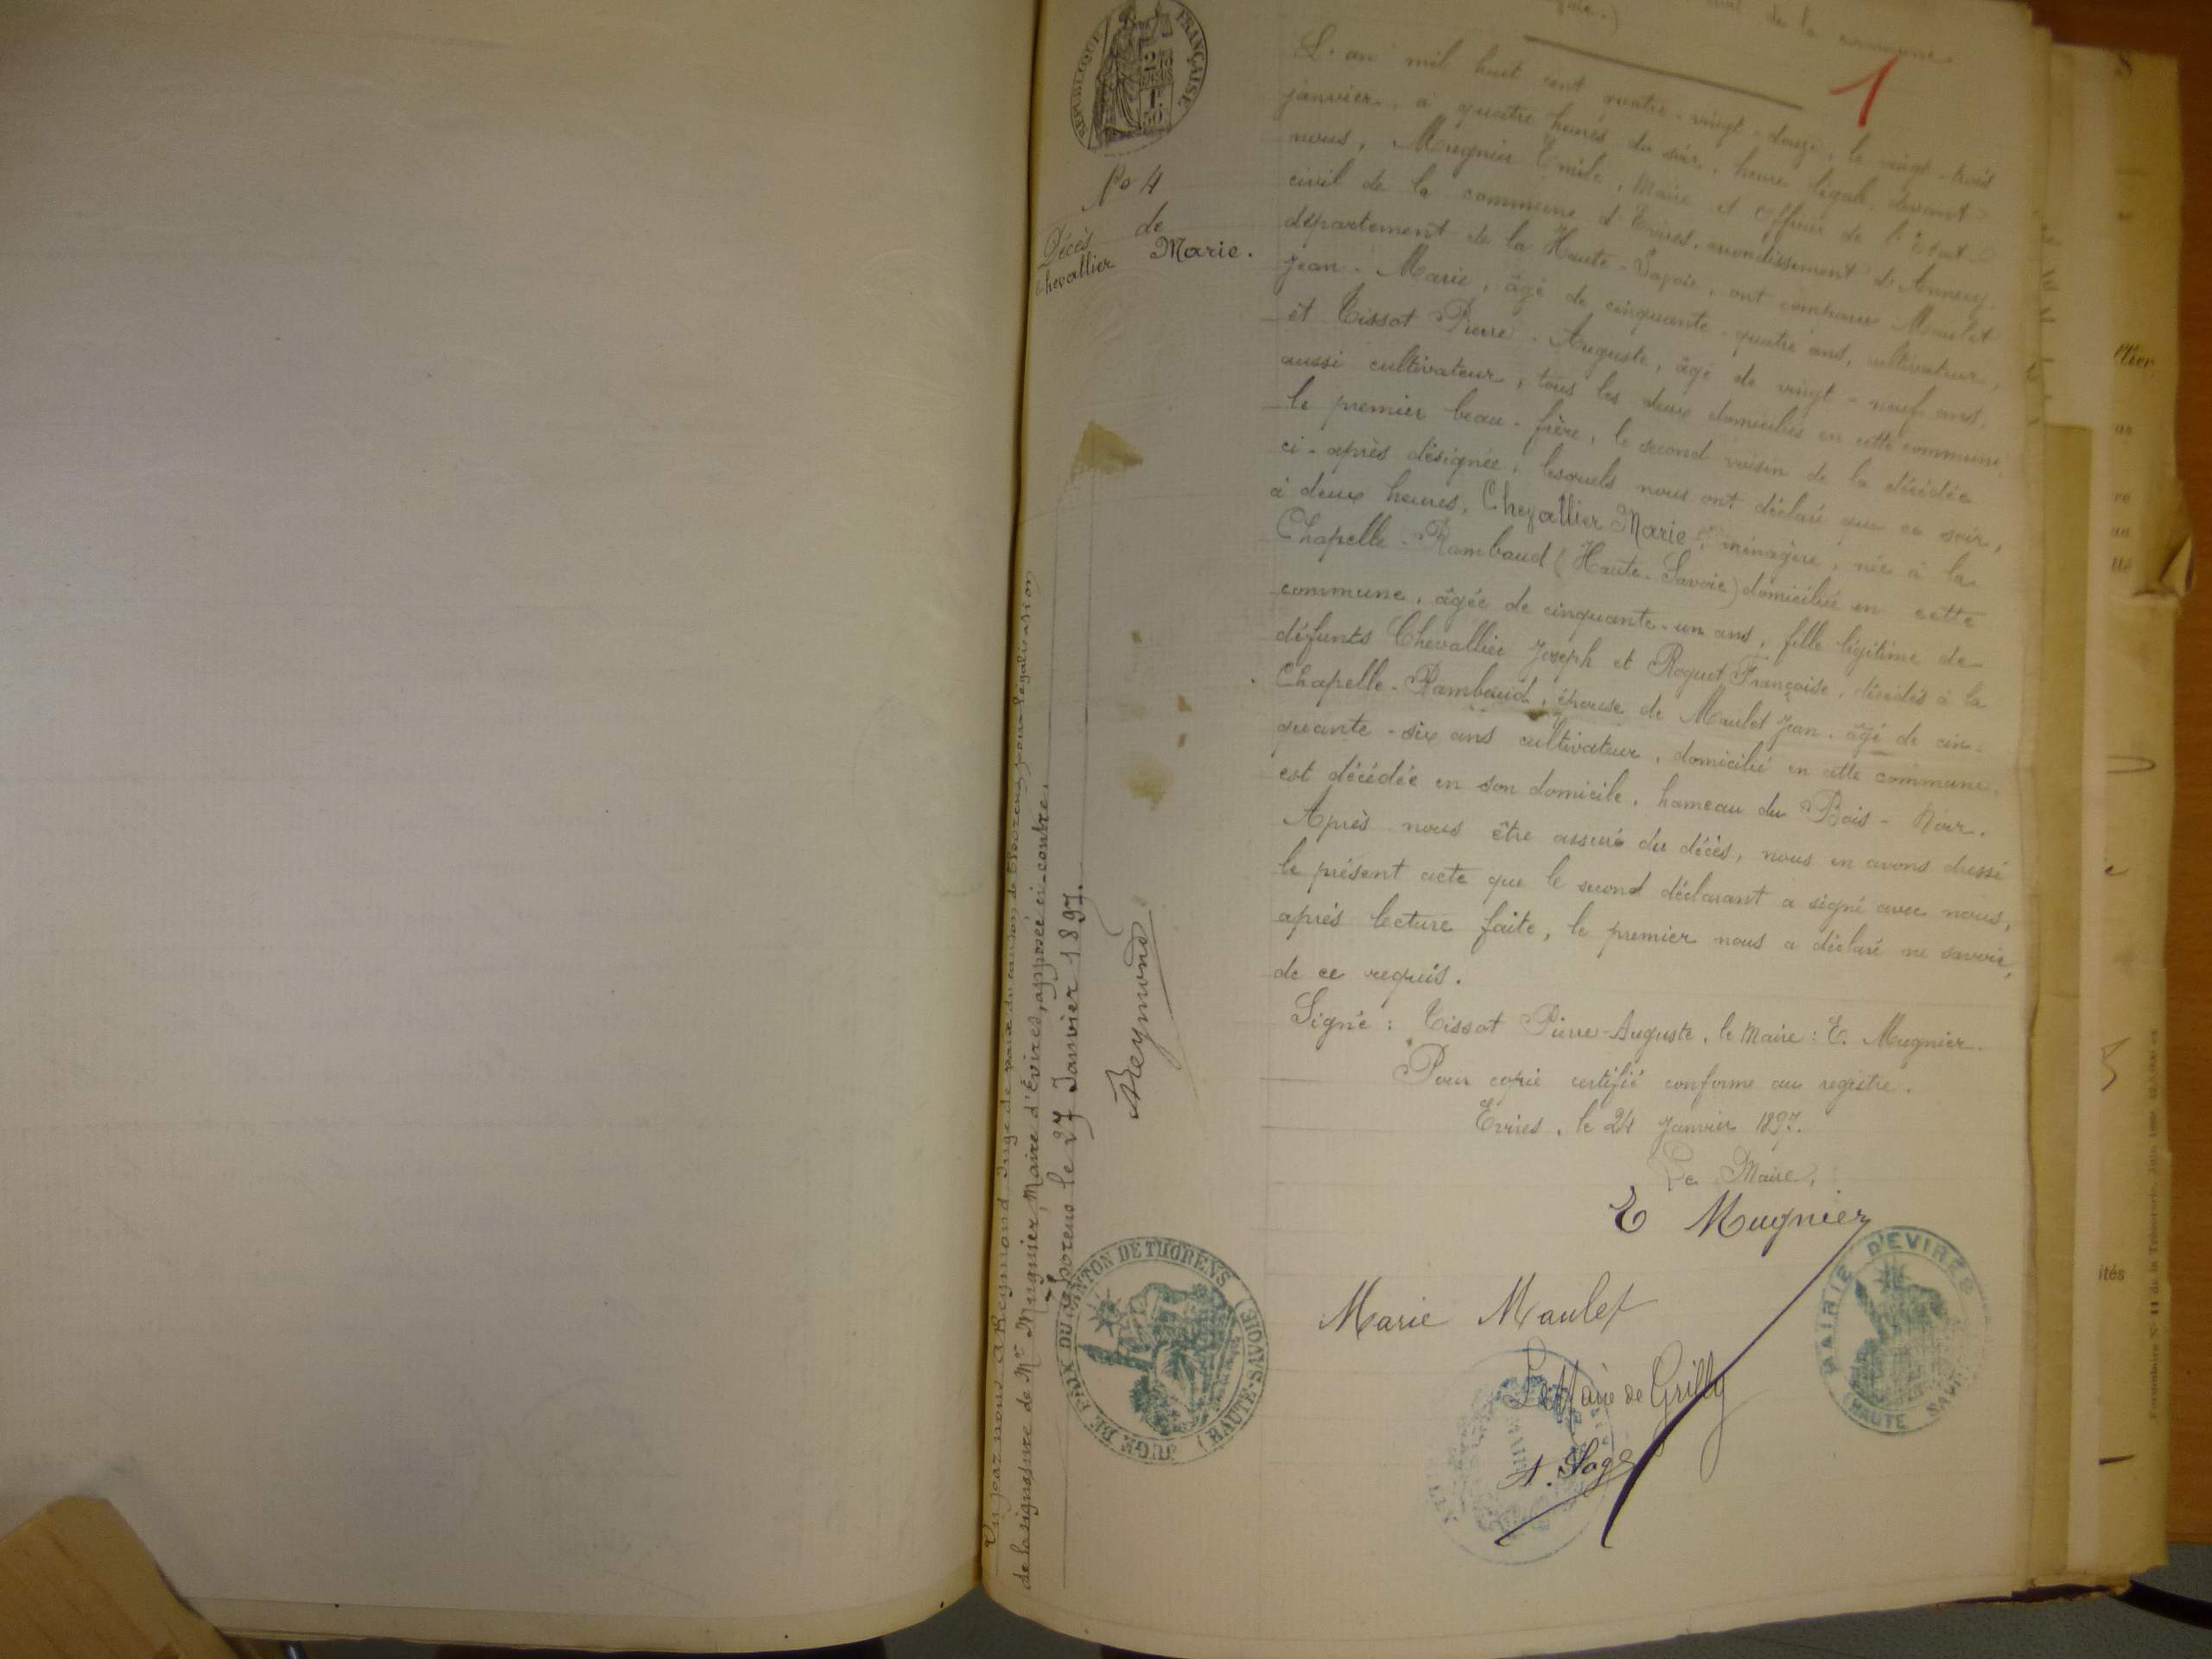 RÉPUBLIQUE FRANÇAISE
No 4
Décès de
Chevallier Marie.
de la commune
1
L'an mil huit cent quatre-vingt-douze, le vingt-trois
janvier, à quatre heures du soir, heure légale, devant
nous, Mugnier Emile, Maire et Officier de l'Etat
civil de la commune d'Evires, arrondissement d'Annecy,
département de la Haute-Savoie, ont comparu Maulet
Jean-Marie, âgé de cinquante-quatre ans, cultivateur,
et Tissot Pierre-Auguste, âgé de vingt-neuf ans,
aussi cultivateur, tous les deux domiciliés en cette commune,
le premier beau-frère, le second voisin de la décédée
ci-après désignée, lesquels nous ont déclaré que ce soir,
à deux heures, Chevallier Marie, ménagère, née à la
Chapelle-Rambaud (Haute-Savoie) domiciliée en cette
commune, âgée de cinquante-un ans, fille légitime de
défunts Chevallier Joseph et Roguet Françoise, décédés à la
Chapelle-Rambaud, épouse de Maulet Jean, âgé de cin-
quante-six ans cultivateur, domicilié en cette commune,
est décédée en son domicile, hameau du Bois-Noir.
Après nous être assuré du décès, nous en avons dressé
le présent acte que le second déclarant a signé avec nous,
après lecture faite, le premier nous a déclaré ne savoir,
de ce requis.
Signé : Tissot Pierre-Auguste, le Maire : E. Mugnier.
Pour copie certifié conforme au registre.
Evires, le 24 Janvier 1897.
Le Maire,
E Mugnier
MAIRIE D'EVIRES
HAUTE SAVOIE
Marie Maulet
Le Maire de Grilly
A. Sage
Vu par nous A Reymond Juge de paix du canton de Thorens, pour légalisation
de la signature de Mr Mugnier, Maire d'Evires, apposée ci-contre.
Thorens le 27 Janvier 1897.
AReymond
JUGE DE PAIX DU CANTON DE THORENS
(HAUTE-SAVOIE)